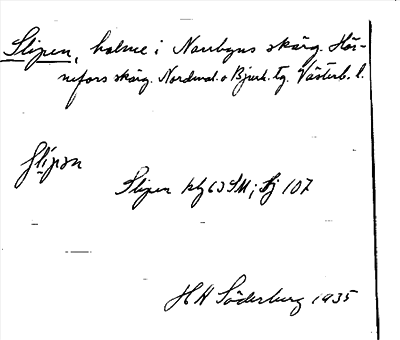 Slipen, holme i Norrbyns skärg. Hör-
nefors skärg. Nordmal. o Bjurh. tg. Västerb. l.
slipən
Slipen 63 SM; Sj 107
H H Söderburg 1935